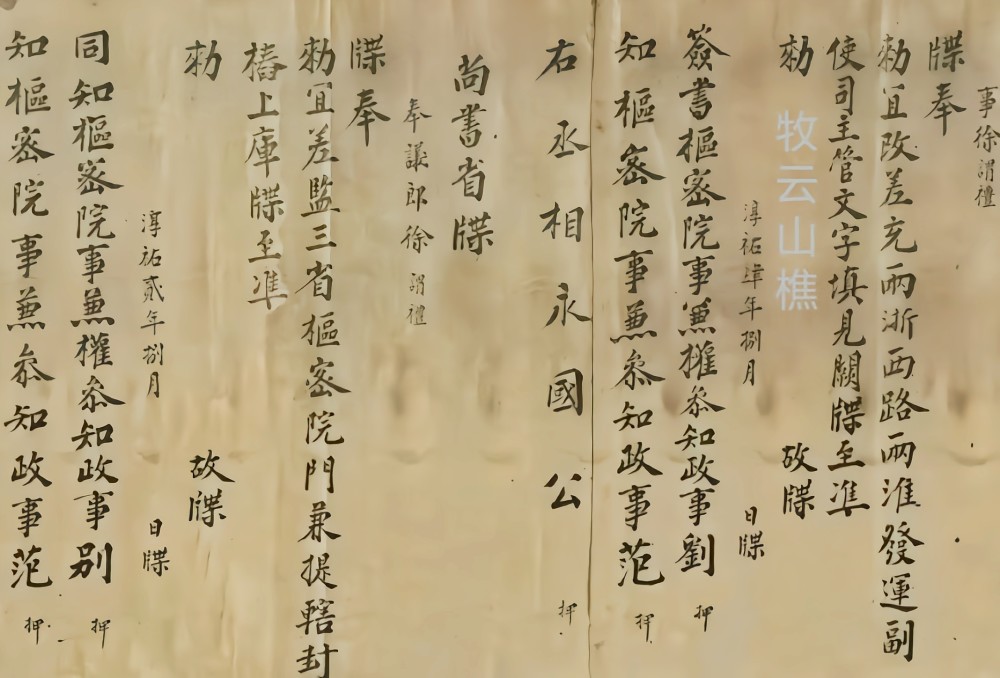 事徐謂禮
牒奉
勑宜改差充兩浙西路兩淮發運副
使司主管文字填見闕牒至准
勑 故牒
淳祐肆年捌月 日牒
簽書樞密院事兼權叅知政事劉 押
知樞密院事兼叅知政事范 押
右丞相永國公 押
尚書省牒
奉議郎徐謂禮
牒奉
勑宜差監三省樞密院門兼提轄封
樁上庫牒至准
勑 故牒
淳祐貳年捌月 日牒
同知樞密院事兼權叅知政事别 押
知樞密院事兼叅知政事范 押
牧云山樵